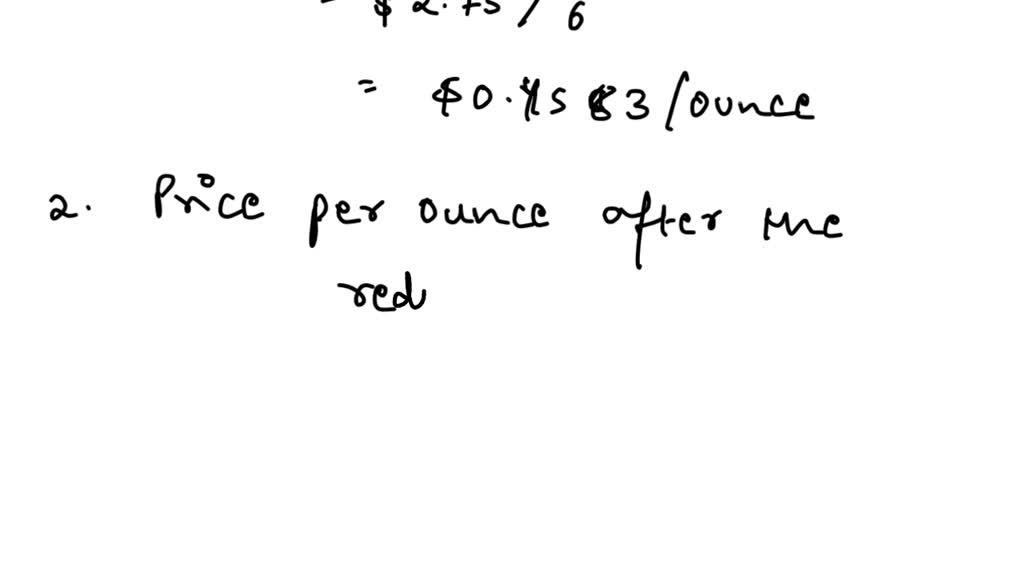 = $2.75 / 6
= $0.4583 /ounce
2. Price per ounce after the
red